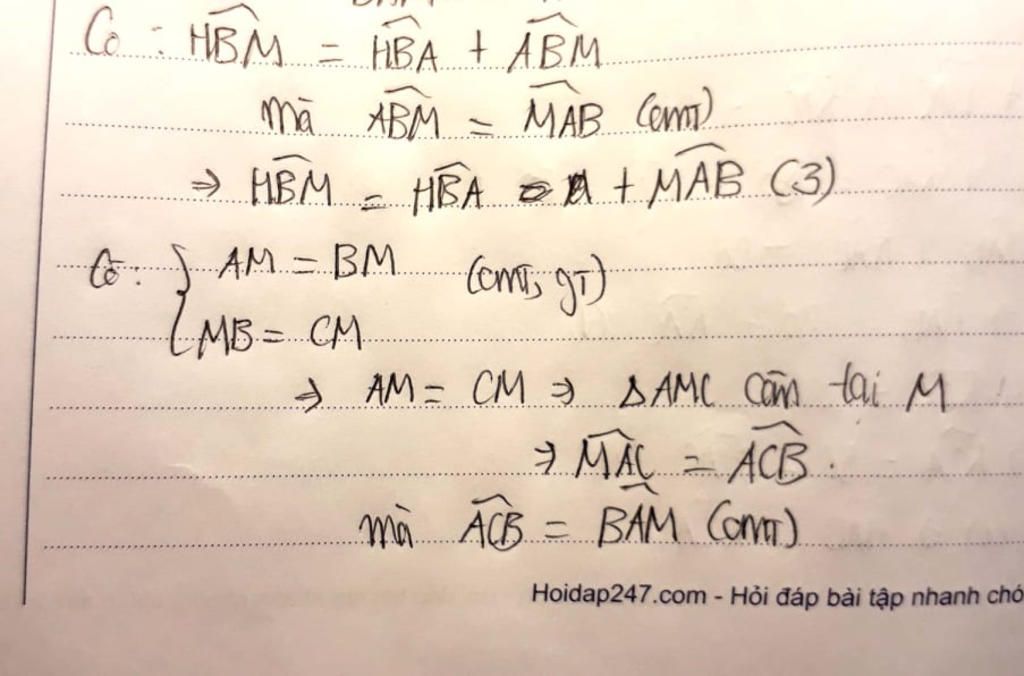 Có : HBM = HBA + ABM
mà ABM = MAB (cmt)
⇒ HBM = HBA + MAB (3)
Có : { AM = BM (cmt, gt)
MB = CM
⇒ AM = CM ⇒ Δ AMC cân tại M
⇒ MAC = ACB .
mà ACB = BAM (cmt)
Hoidap247.com - Hỏi đáp bài tập nhanh chó